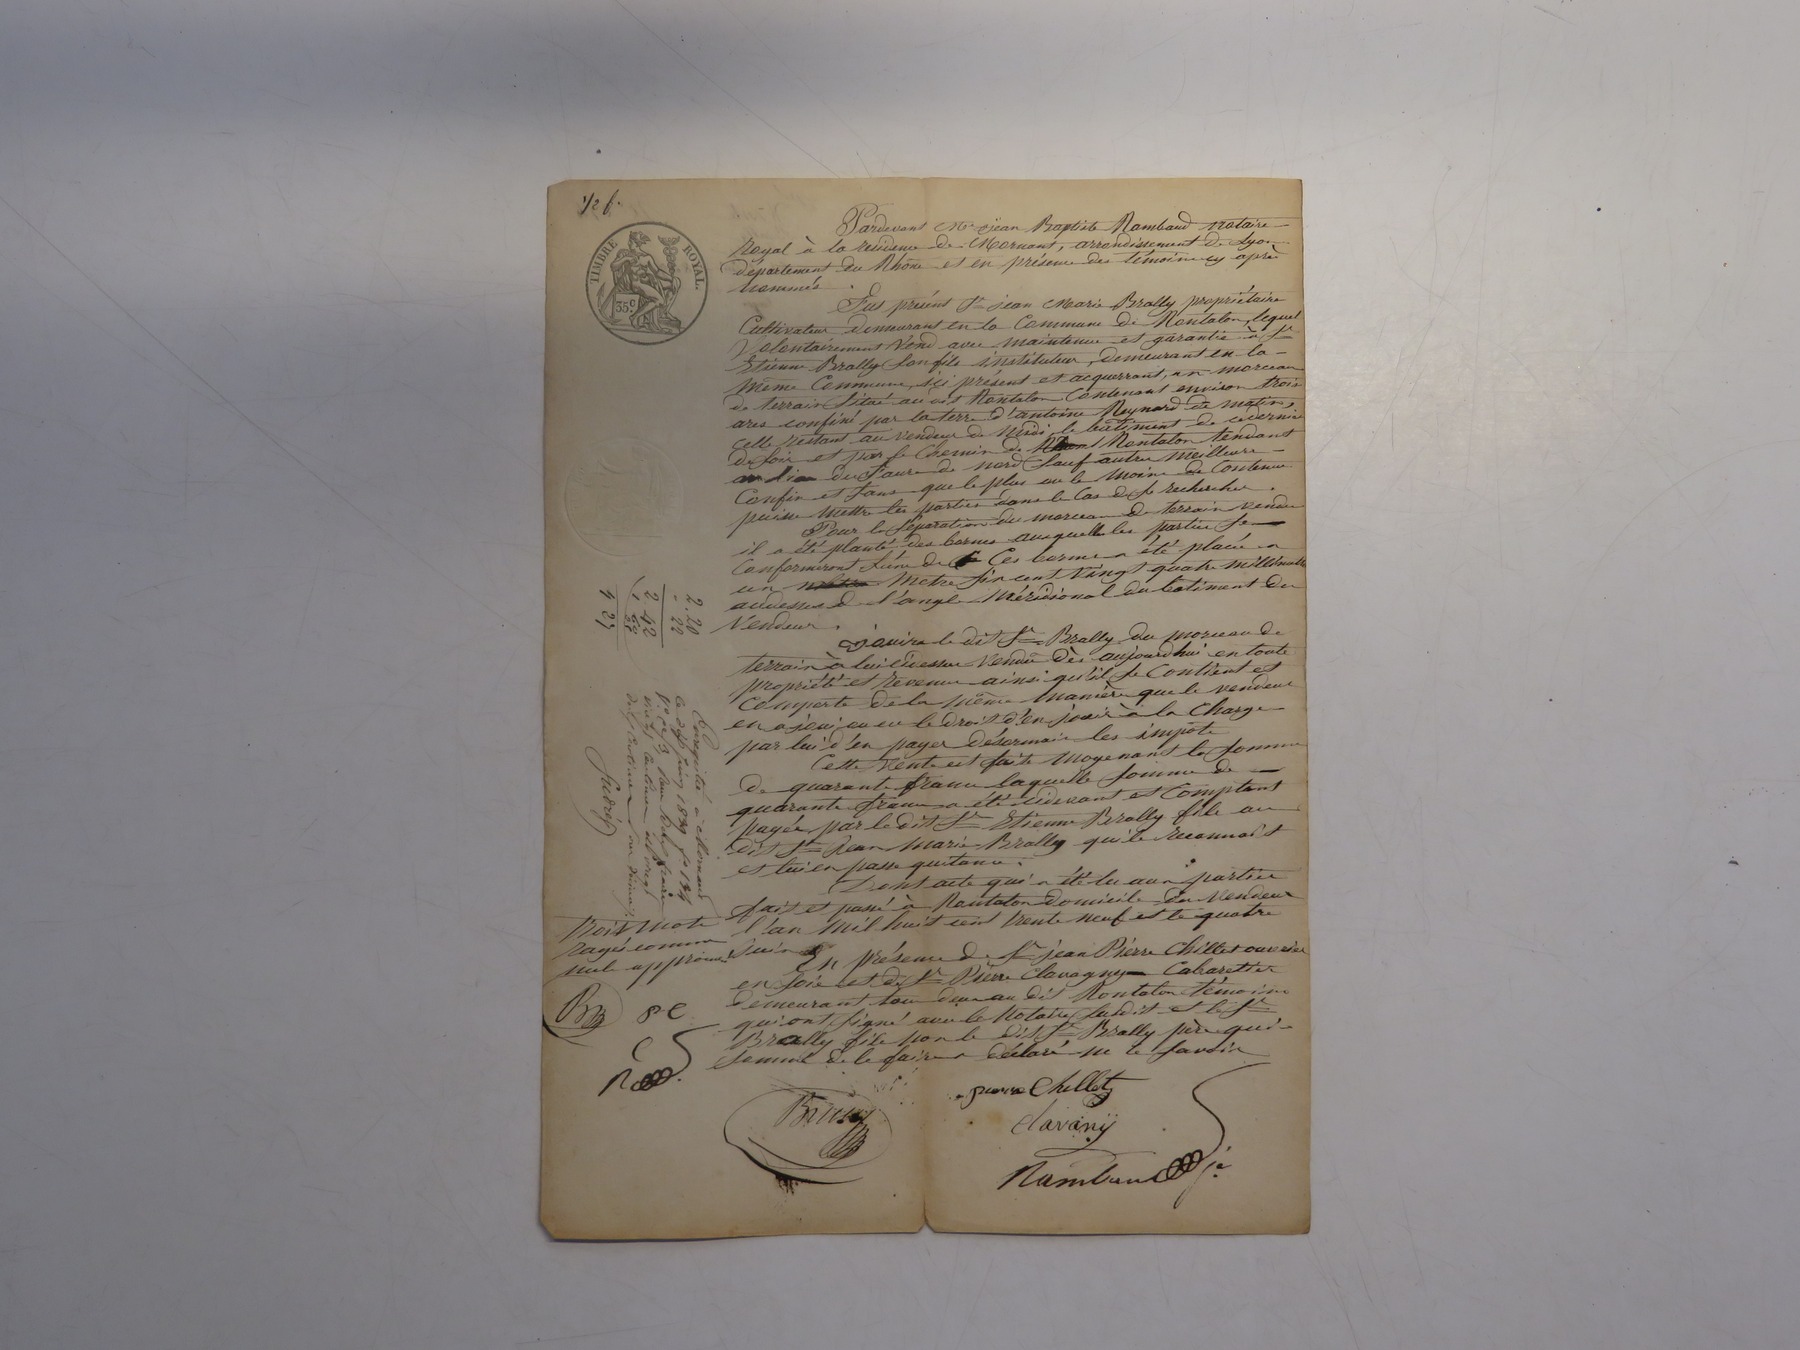 TIMBRE ROYAL.
35c
Pardevant Me jean Baptiste Rambaud notaire
Royal à la residence de Mornant, arrondissement de Lyon
département du Rhône et en présence des témoins cy après
nommés.
Fut présent Sr jean Marie Brally propriétaire
Cultivateur demeurant en la Commune de Rontalon, lequel
Volontairement Vend avec maintenue et garantie à Sr
Etienne Brally Son fils instituteur, demeurant en la
même Commune, ici présent et acquerrant, un morceau
de terrain Situé au dit Rontalon Contenant environ trois
ares confiné par la terre d'antoine Reynard de matin,
celle restant au vendeur de Midi, le batiment de ce dernier
de Soir et par le Chemin de Rontalon tendant
du Faure de nord Sauf autres meilleurs
Confins et Sans que le plus ou le moins de Contenue
puisse mettre les parties dans le Cas de Se rechercher.
Pour la Séparation du morceau de terrain vendu
il a été planté des bornes auxquelles les parties Se
Conformiront L'une de Ces bornes a été placée a
un Metre Six cent Vingt quatre millimetres
audessus de l'angle Méridional du batiment du
Vendeur.
Jouira le dit Sr Brally du morceau de
terrain à lui cidessus Vendu dès aujourd'hui en toute
propriété et revenus ainsi qu'il Se Contient et
Comporte de la même manière que le vendeur
en a joui ou eu le droit d'en jouir à la Charge
par lui d'en payer désormais les impots
Cette Vente est faite moyenant la Somme
de quarante francs laquelle Somme de
quarante francs a été cidevant et Comptant
payée par le dit Sr Etienne Brally fils au
dit Sr Jean Marie Brally qui le reconnait
et lui en passe quitance.
Dont acte qui a été lu aux parties
fait et passé à Rontalon domicile du Vendeur
l'an Mil huit cent trente neuf et le quatre
Juin
En présence de Sr jean Pierre Chillet ouvrier
en Soie et de Sr Pierre Clavagny Cabaretier
demeurant tous deux au dit Rontalon témoins
qui ont Signé avec le Notaire Susdit et le Sr
Brally fils non le dit Sr Brally père qui
Sommé de le faire a déclaré ne le Savoir
pierre Chillet
Clavany
Rambaud
trois mots
rayés comme
nuls approuvés
PC
C
R
2.20
22
2 42
4 27
Enregistré à Mornant